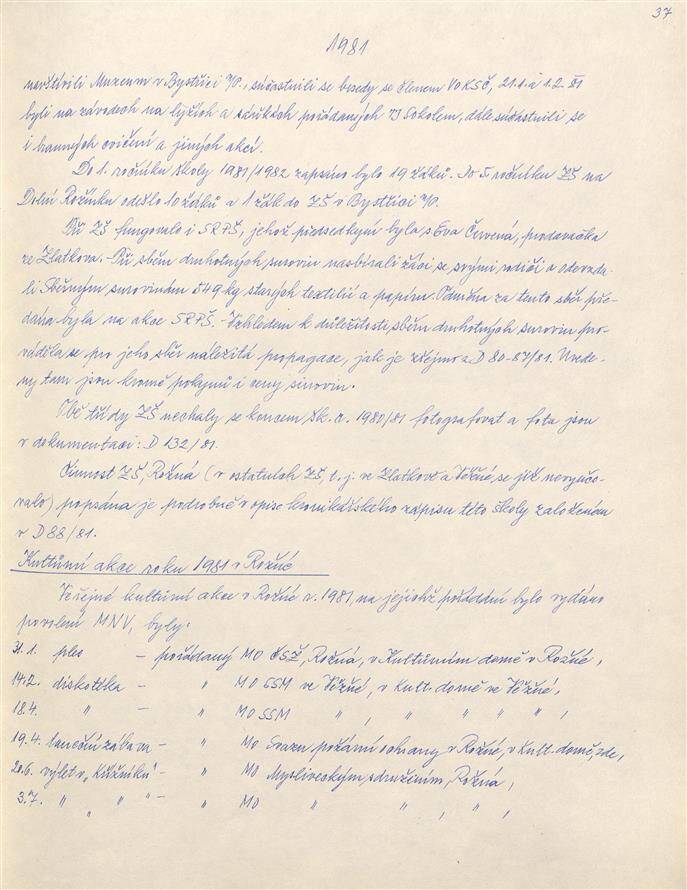 37
1981
navštívili Muzeum v Bystřici n/P., súčastnili se besedy se členem VOKSČ, 21.1. a 1.2. 81
byli na závodech na lyžích a sáňkách pořádaných TJ Sokolem, dále súčastnili se
i branných cvičení a jiných akcí.
Do 1. ročníku školy 1981/1982 zapsáno bylo 19 žáků. Do 5 ročníku ZŠ na
Dolní Rožínku odešlo 10 žáků a 1 žák do ZŠ v Bystřici n/P.
Při ZŠ fungovalo i SRPŠ, jehož předsedkyní byla s. Eva Červená, prodavačka
ze Zlatkova. Při sběru druhotných surovin nasbírali žáci se svými rodiči a odevzda-
li Sběrným surovinám 549 kg starých textilií a papíru. Odměna za tento sběr pře-
dána byla na akce SRPŠ. Vzhledem k důležitosti sběru druhotných surovin pro-
váděla se pro jeho sběr náležitá propagace, jak je zřejmo z D 80-87/81. Uvede-
ny tam jsou kromě pokynů i ceny surovin.
Obě třídy ZŠ nechaly se koncem šk. r. 1980/81 fotografovat a fota jsou
v dokumentaci: D 132/81.
Činnost ZŠ, Rožná (v ostatních ZŠ, t.j. ve Zlatkově a Věžné se již nevyučo-
valo) popsána je podrobně v opise kronikářského zápisu této školy založeném
v D 88/81.
Kulturní akce roku 1981 v Rožné
Veřejné kulturní akce v Rožné r. 1981, na jejichž pořádání bylo vydáno
povolení MNV, byly:
31.1. ples - pořádaný MO ČSŽ, Rožná, v Kulturním domě v Rožné,
14.2. diskotéka - " MO SSM ve Věžné, v Kult. domě ve Věžné,
18.4. " - " MO SSM " , " " " " ,
19.4. taneční zábava - " MO Svazu požární ochrany v Rožné, v Kult. domě, zde,
20.6. výlet v „Kužníku" - " MO Mysliveckým sdružením, Rožná,
3.7. " " " - " MO " " , " ,